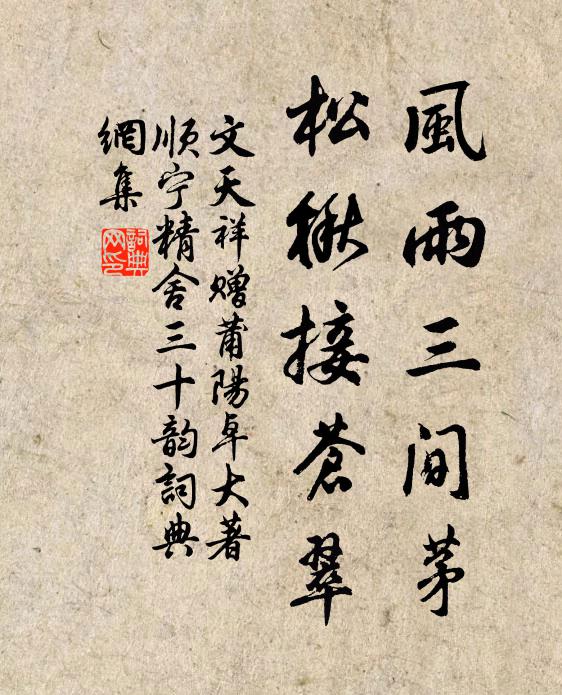 風雨三間茅
松楸接蒼翠
文天祥贈莆陽卓大著
順宁精舍三十韵詞典
網集
詞典
网印